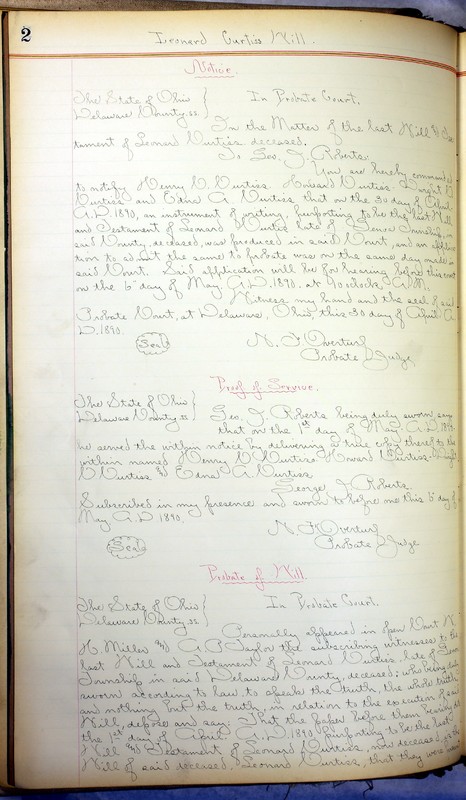 2
Leonard Curtiss Will.
Notice.
The State of Ohio }
Delaware County. ss
In Probate Court.
In the Matter of the last Will & Tes-
tament of Leonard Curtiss, deceased.
To Geo. J. Roberts.
You are hereby commanded
to notify Henry C. Curtiss. Howard Curtiss. Dwight
Curtiss and Edna A. Curtiss that on the 30 day of April
A.D. 1890, an instrument of writing, purporting to be the last Will
and Testament of Leonard Curtis late of Genoa Township, in
said County, deceased, was produced in said Court, and an applica-
tion to admit the same to probate was on the same day made in
said Court. Said application will be for hearing before this court
on the 6" day of May. A.D. 1890. at 9 o'clock A.M.
Witness my hand and the seal of said
Probate Court, at Delaware, Ohio, this 30 day of April A.
D. 1890.
Seal
N. F. Overturf
Probate Judge
Proof of Service.
The State of Ohio }
Delaware County ss
Geo. J. Roberts being duly sworn says
that on the 1st day of May A.D. 1890.
he served the within notice by delivering a true copy thereof to the
within named Henry C. Curtiss Howard Curtiss. Dwight
C. Curtiss and Edna A. Curtiss
George J. Roberts.
Subscribed in my presence and sworn to before me this 5" day of
May A.D. 1890.
Seal
N. F. Overturf
Probate Judge
Probate of Will.
The State of Ohio }
Delaware County. ss
In Probate Court.
Personally appeared in open Court W.
H. Miller and A. B. Taylor the subscribing witnesses to the
last Will and Testament of Leonard Curtiss, late of Genoa
Township in said Delaware County, deceased; who being duly
sworn according to law, to speak the truth, the whole truth
and nothing but the truth, in relation to the execution of said
Will, depose and say: That the paper before them bearing date
the 1st day of April A.D. 1890 purporting to be the last
Will and Testament of Leonard Curtiss, now deceased, is the
Will of said deceased, Leonard Curtiss, that they were